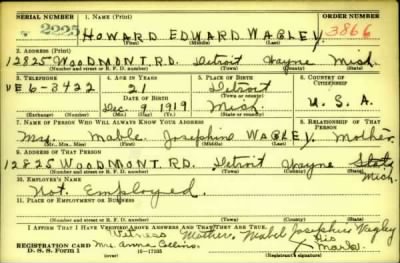 SERIAL NUMBER 1. NAME (Print) ORDER NUMBER
2225 HOWARD EDWARD WAGLEY 3866
(First) (Middle) (Last)
2. ADDRESS (Print)
12825 WOODMONT. RD. Detroit Wayne Mich.
(Number and street or R. F. D. number) (Town) (County) (State)
3. TELEPHONE 4. AGE IN YEARS 5. PLACE OF BIRTH 6. COUNTRY OF CITIZENSHIP
VE 6-3422 21 Detroit
DATE OF BIRTH (Town or county)
Dec 9 1919 Mich. U. S. A.
(Exchange) (Number) (Mo.) (Day) (Yr.) (State or country)
7. NAME OF PERSON WHO WILL ALWAYS KNOW YOUR ADDRESS 8. RELATIONSHIP OF THAT PERSON
Mrs. Mable Josephine WAGLEY. Mother
(Mr., Mrs., Miss) (First) (Middle) (Last)
9. ADDRESS OF THAT PERSON
12825 WOODMONT. RD. Detroit Wayne State
(Number and street or R. F. D. number) (Town) (County) Mich.
10. EMPLOYER'S NAME
Not Employed.
11. PLACE OF EMPLOYMENT OR BUSINESS
(Number and street or R. F. D. number) (Town) (County) (State)
I AFFIRM THAT I HAVE VERIFIED ABOVE ANSWERS AND THAT THEY ARE TRUE.
Witness Mother, Mabel Josephine Wagley
REGISTRATION CARD Mrs Anna Collins X His Mark
D. S. S. Form 1 16-17105 (Registrant's signature)